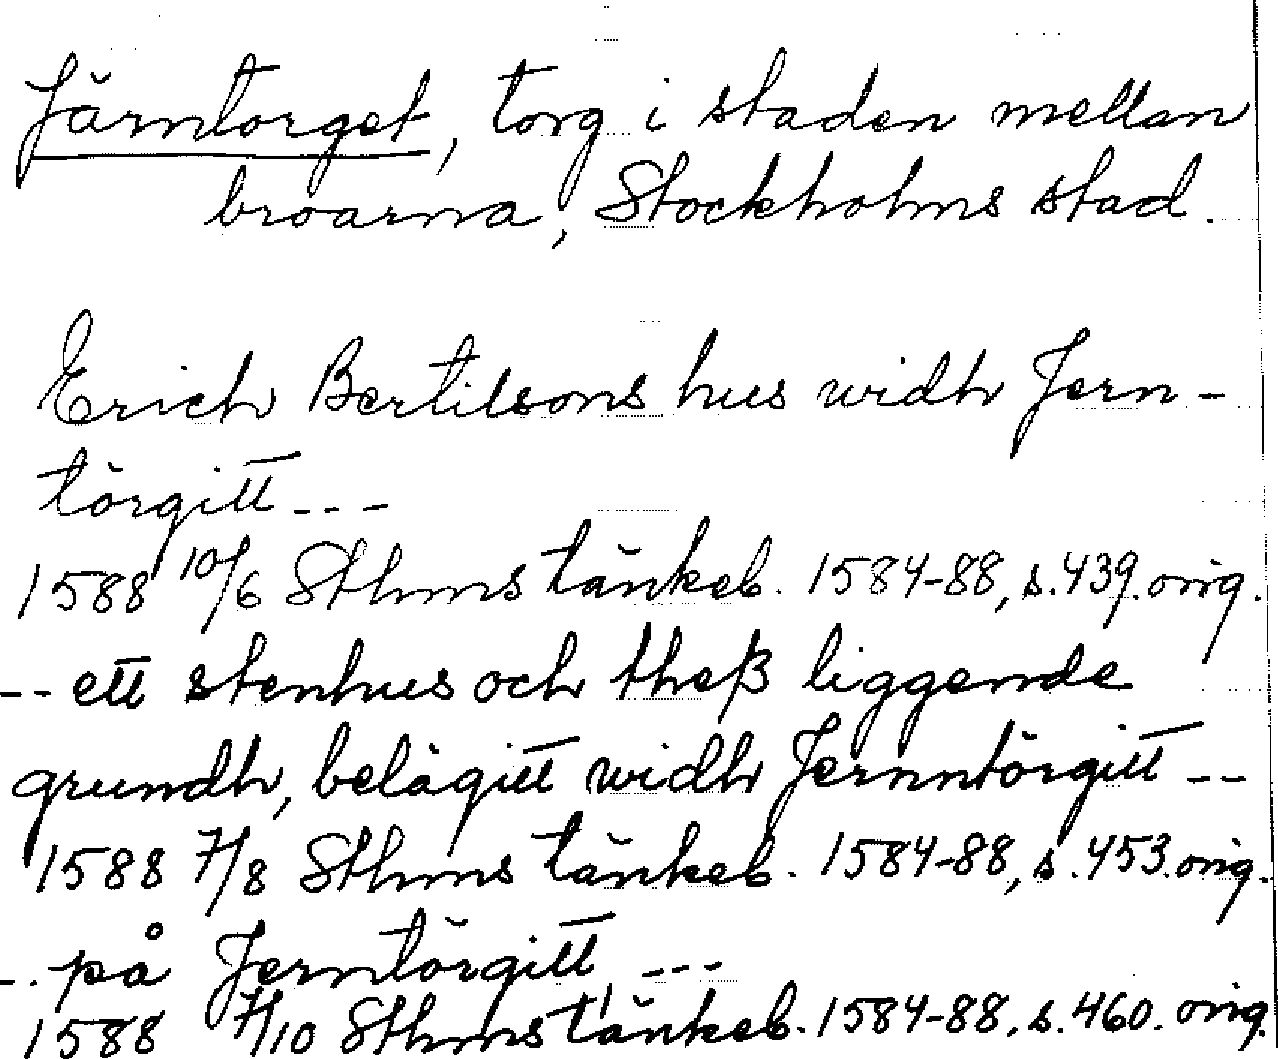 Järntorget, torg i staden mellan
broarna, Stockholms stad.
Erich Bertilsons hus widh Jern-
törgitt ---
1588 10/6 Sthms tänkeb. 1584-88, s. 439. orig.
-- ett stenhus och theß liggende
grundh, belägitt widh Jernntörgitt --
1588 7/8 Sthms tänkeb. 1584-88, s. 453. orig.
-. på Jerntörgitt ---
1588 7/10 Sthms tänkeb. 1584-88, s. 460. orig.